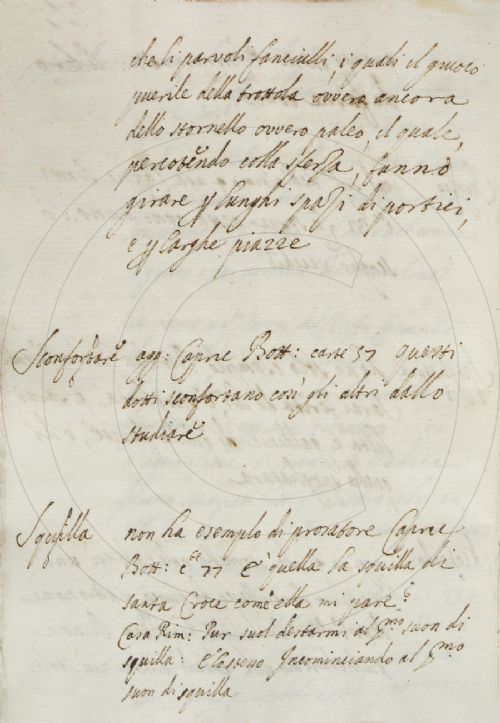 che li parvoli fanciulli, i quali il giuoco
puerile della trottola ovvero ancora
dello stornello ovvero paleo, il quale,
percotēndo colla sferza, fanno
girare p lunghi spazi di portici,
e p larghe piazze
Sconfortare agg: Capric Bott: carte 57 questi
dotti sconfortano così gli altri dallo
studiare
Squilla non ha esempio di prosatore Capric
Bott: c.te 77 è quella la squilla di
santa Croce com'ella mi pare?
Casa Rim: Pur suol destarmi al p.mo suon di
squilla: e Incominciando al p.mo
suon di squilla